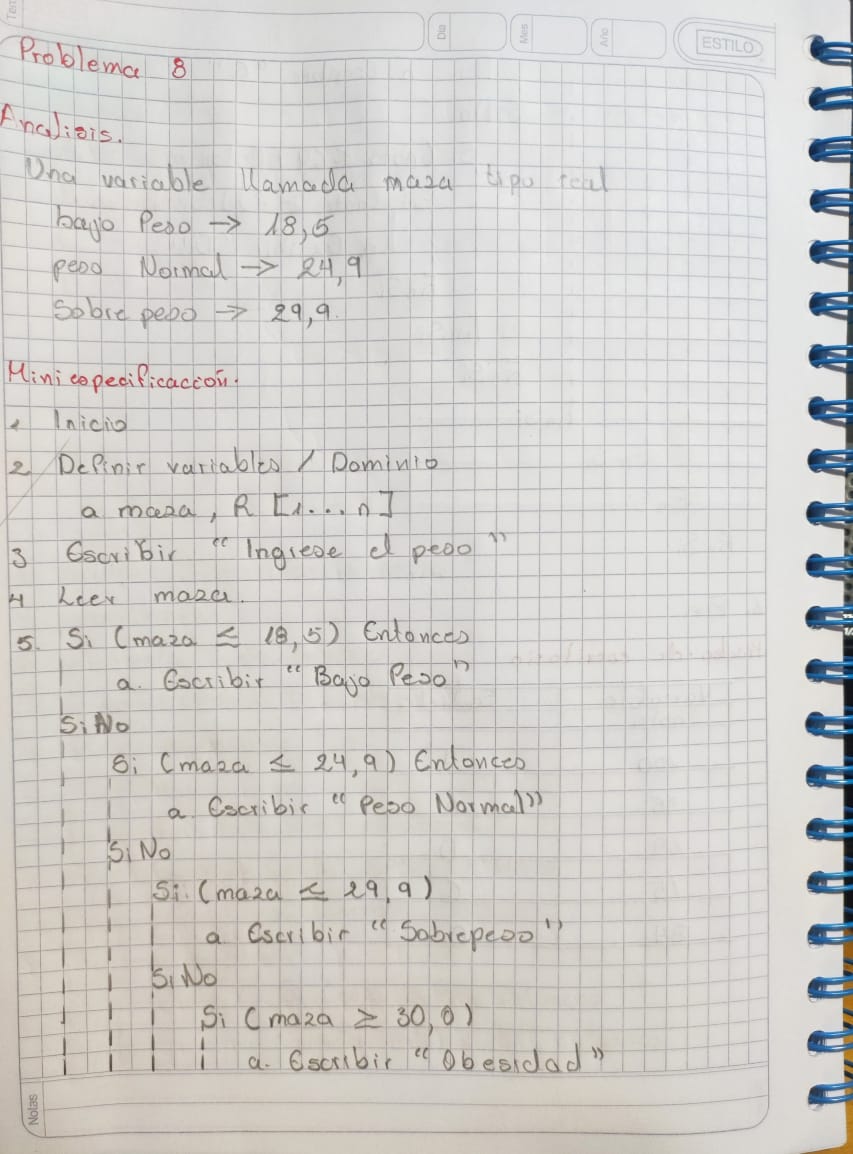 Dia
Mes
Año
ESTILO
Problema 8
Analisis.
Una variable llamada maza tipo real
bajo Peso → 18,5
peso Normal → 24,9
Sobre peso → 29,9.
Miniespecificaccion.
1 Inicio
2 Definir variables / Dominio
a maza, R [1....n]
3 Escribir "Ingrese el peso"
4 Leer maza.
5. Si (maza ≤ 18,5) Entonces
a. Escribir "Bajo Peso"
SiNo
Si (maza ≤ 24,9) Entonces
a Escribir "Peso Normal"
SiNo
Si. (maza ≤ 29,9)
a Escribir "Sobrepeso"
SiNo
Si (maza ≥ 30,0)
a. Escribir "Obesidad"
Notas